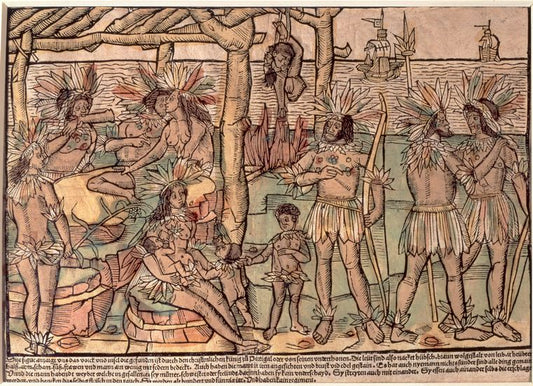 Dise figur anzaigt vns das volck vnd insel die gefunden ist durch den christenlichen künig zů Portigal oder von seinen vnterthonen. Die leüt sind also nacket hübsch. braun wolgestalt von leib. ir heübter
halß. arm. scham. füß. frawen vnd mann ain wenig mit federn bedeckt. Auch haben die mann in iren angesichten vnd brust vil edel gestain. Es hat auch nyemantz nichts sunder sind alle ding gemain
Vnd die mann habendt weyber welche in gefallen. es sey můter, schwester oder freündt. darinn haben sy kain vnderschayd. Sy streyten auch mit einander. Sy essen auch ainander selbs die erschlagen
werden. vnd hencken das selbig fleisch in den rauch. Sy werden alt hundert vnd fünfftzig iar. Vnd haben kain regiment.